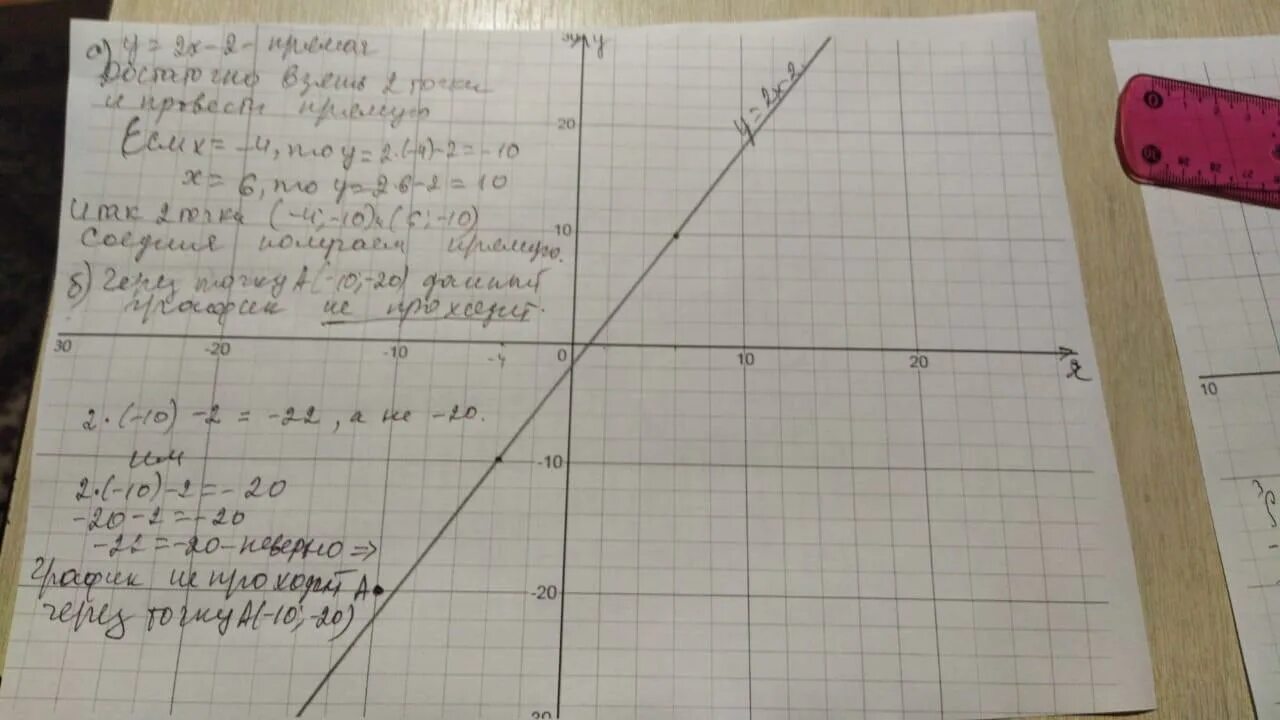 а) y = 2x - 2 - прямая
Достаточно взять 2 точки
и провести прямую
Если x = -4, то y = 2·(-4)-2 = -10
x = 6, то y = 2·6-2 = 10
Итак 2 точки (-4; -10) и (6; -10)
Соединив получаем прямую.
б) Через точку A(-10; -20) данный
график не проходит.
2·(-10) -2 = -22, а не -20.
или
2·(-10)-2 = -20
-20-2 = -20
-22 = -20 - неверно =>
График не проходит
через точку A(-10; -20)
A
y
y = 2x-2
20
10
30
-20
-10
-4
0
10
20
x
-10
-20
30
10